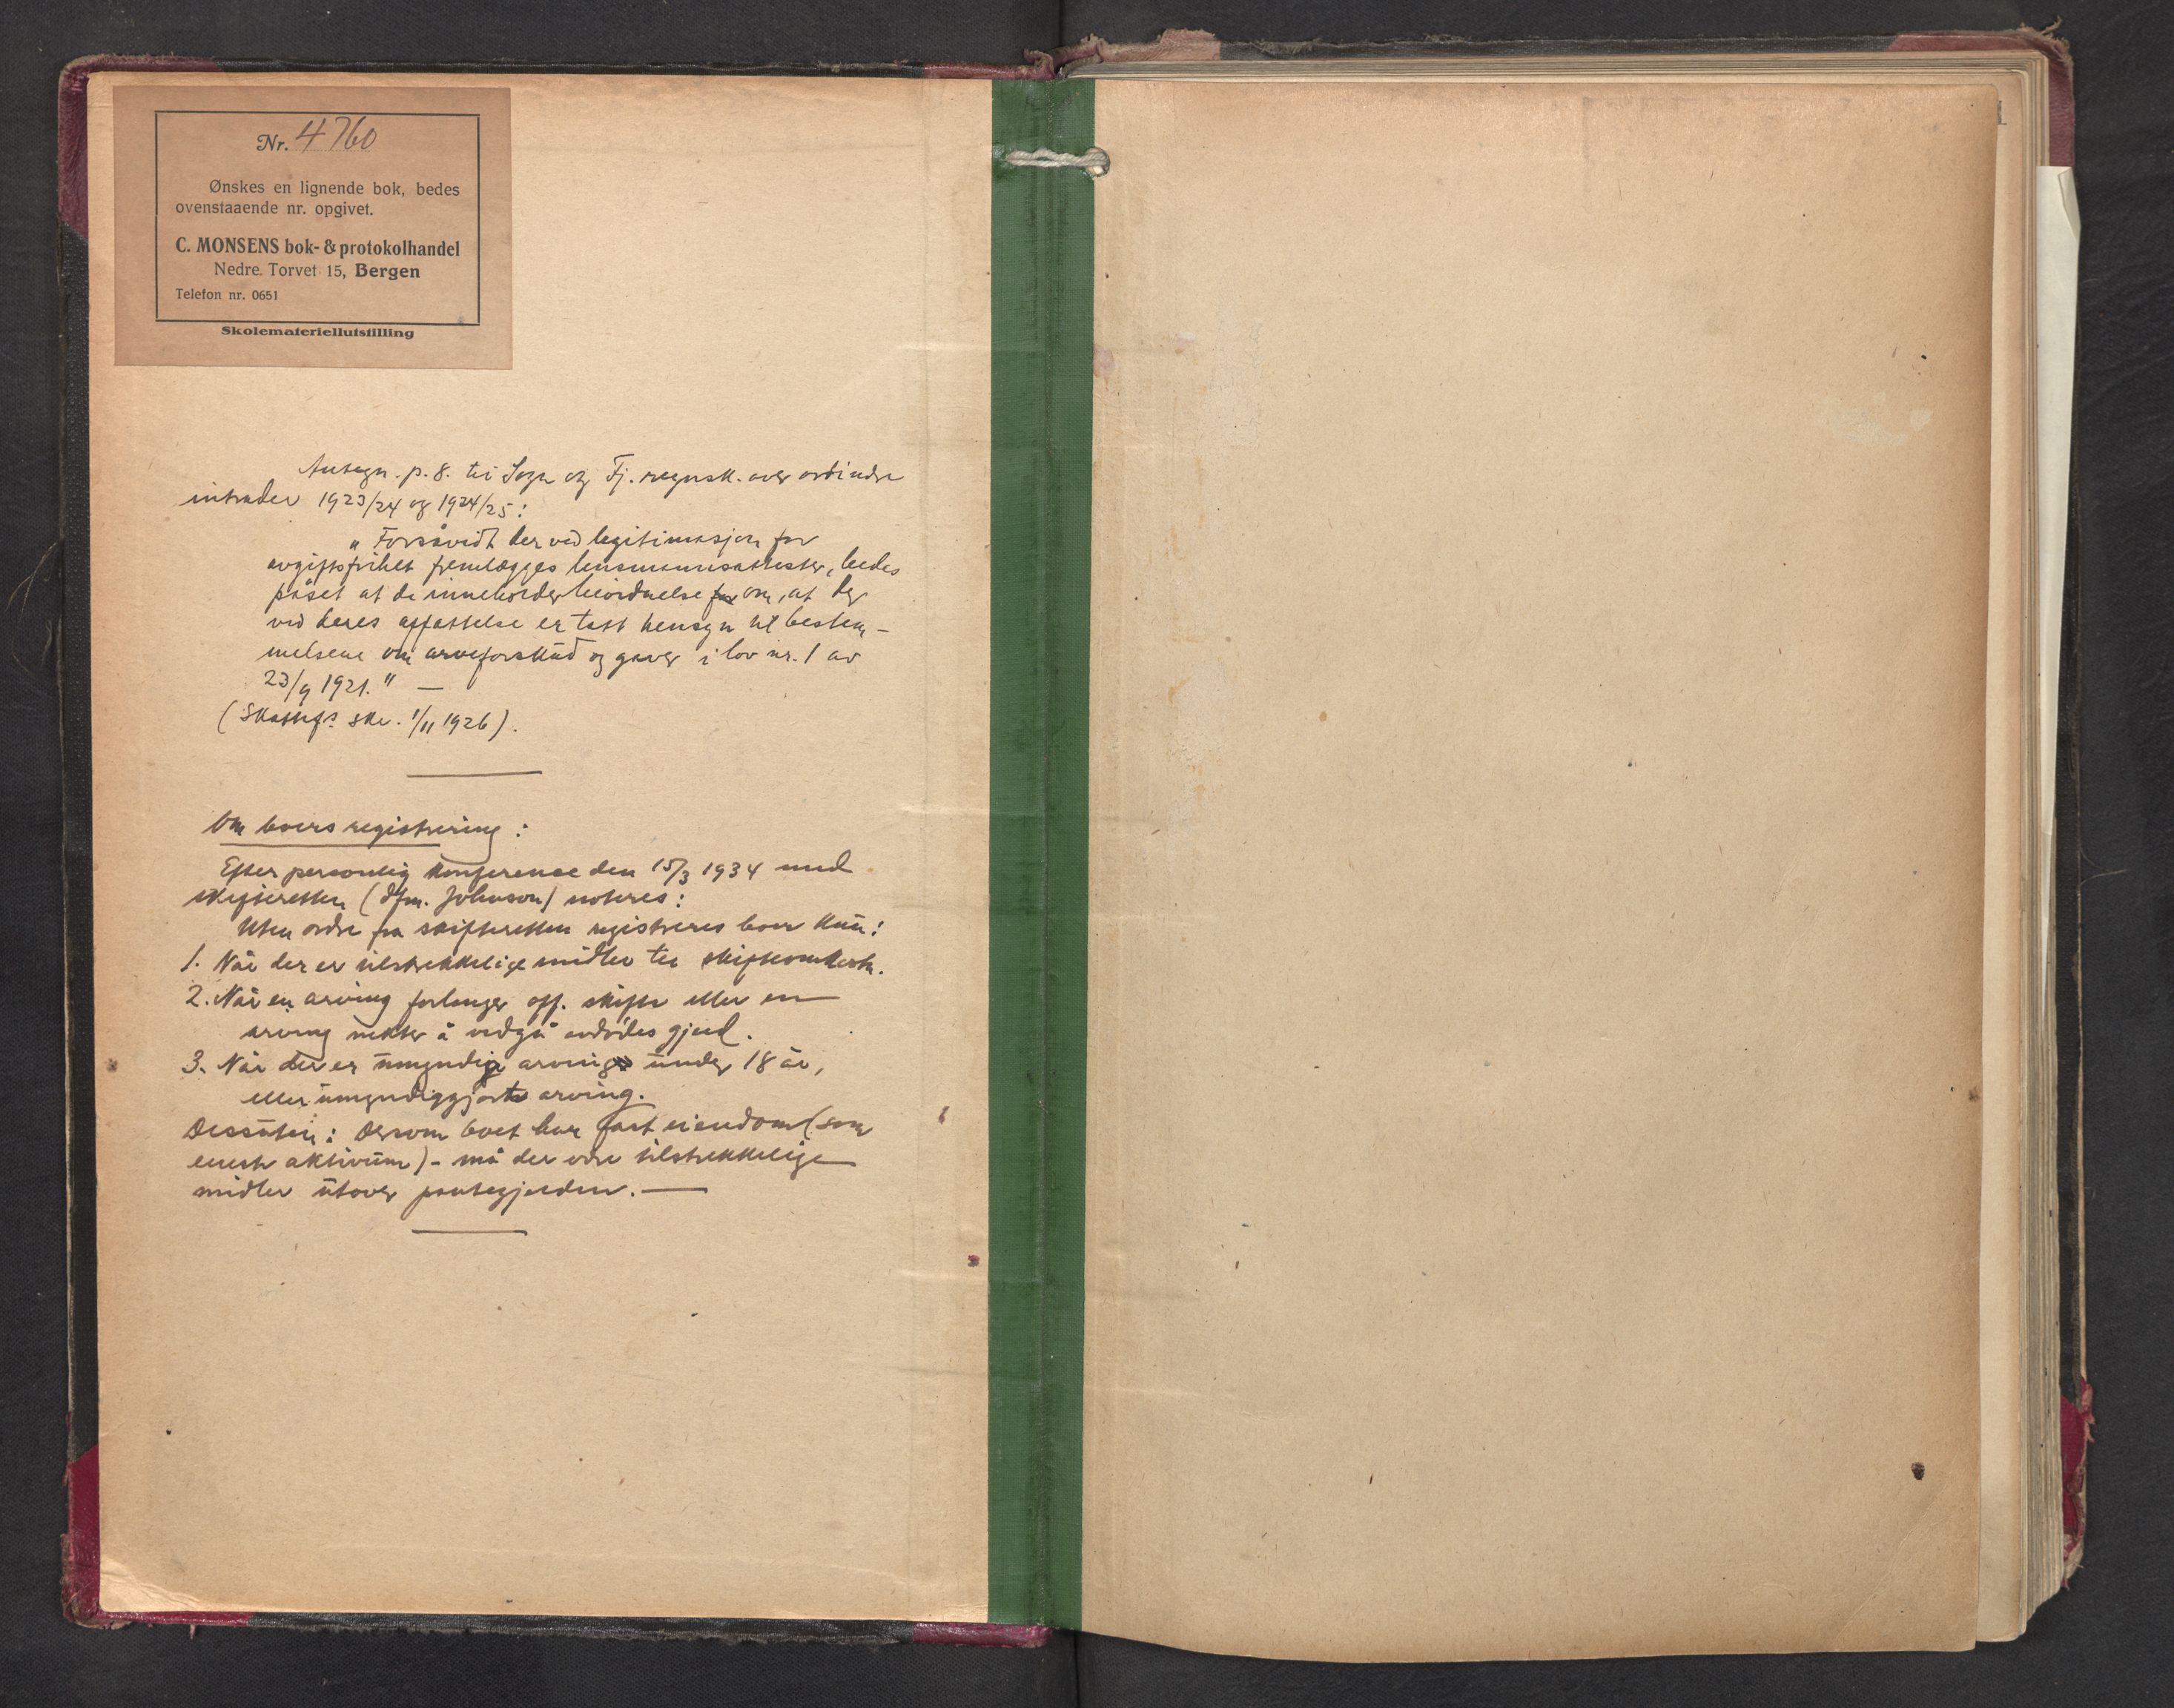 Nr. 4760
Ønskes en lignende bok, bedes
ovenstaaende nr. opgivet.
C. MONSENS bok- & protokolhandel
Nedre. Torvet 15, Bergen
Telefon nr. 0651
Skolemateriellutstilling
Antegn. p. 8. til Sogn og Fj. regnsk. over ordinære
intrader 1923/24 og 1924/25:
„Forsåvidt der ved legitimasjon for
avgiftsfrihet fremlægges lensmannsattester, bedes
påset at de inneholder om, at der
ved deres affattelse er tatt hensyn til bestem-
melsene om arveforskud og gaver i lov nr. 1 av
23/9 1921." —
(Skattefs. skr. 1/11 1926).
Om boers registrering:
Efter personlig konferense den 15/3 1934 med
skifteretten (dfm. Johnson) noteres:
Uten ordre fra skifteretten registreres boer kun:
1. Når der er tilstrekkelige midler til skifteomkostn.
2. Når en arving forlanger off. skifte eller en
arving nekter å vedgå avdødes gjeld.
3. Når der er umyndig arving under 18 år,
eller umyndiggjort arving.
Dessuten: Dersom boet har fast eiendom (som
eneste aktivum) - må der være tilstrekkelige
midler utover pantegjelden. —